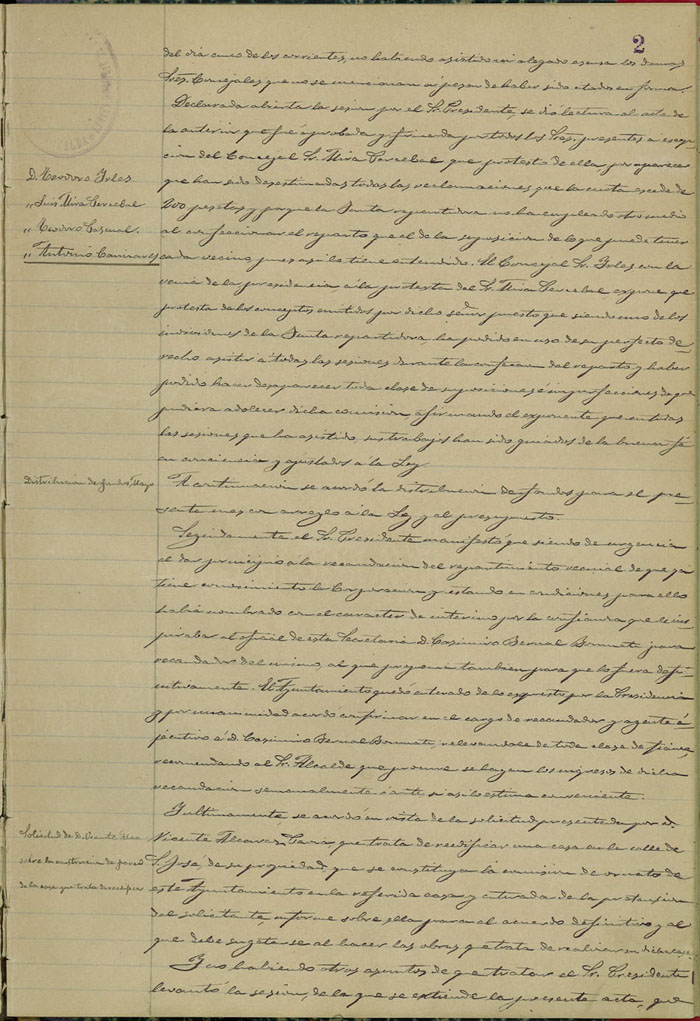 2
del día cinco de los corrientes, no habiendo asistido ni alegado escusa los demas
Sres. Concejales que no se mencionan á pesar de haber sido citados en forma.
Declarada abierta la sesion por el Sr. Presidente, se dió lectura al acta de
la anterior que fué aprobada y firmada por todos los Sres. presentes a escep-
cion del Concejal Sr. Mira Percebal que protestó de ella, por aparecer
D. Teodoro Irles
que han sido desestimadas todas las reclamaciones que la cuota escede de
„ Luis Mira Percebal
200 pesetas, y porque la Junta repartidora no ha empleado otro medio
„ Teodoro Pascual.
al confeccionar el reparto que el de la suposicion de lo que puede tener
„ Antonio
cada vecino pues asi lo tiene entendido. El Concejal Sr. Irles con la
venia de la presidencia á la protesta del Sr. Mira Percebal expone que
protesta de los conceptos emitidos por dicho señor puesto que siendo uno de los
individuos de la Junta repartidora, ha podido en uso de su perfecto de-
recho asistir á todas las sesiones durante la confeccion del reparto y haber
podido hacer desaparecer toda clase de suposiciones é imperfecciones de que
pudiera adolecer dicha comision afirmando el exponente que en todas
las sesiones que ha asistido, sus trabajos han sido guiados de la buena fé
en conciencia y ajustados á la Ley.
Distribucion de fondos, Mayo
A continuacion se acordó la distribucion de fondos para el pre-
sente mes con arreglo á la Ley y al presupuesto.
Seguidamente el Sr. Presidente manifestó que siendo de urgencia
el dar principio á la recaudacion del repartimiento vecinal de que ya
tiene conocimiento la Corporacion y estando en condiciones para ello
habia nombrado con el caracter de interino por la confianza que le ins-
piraba al oficial de esta Secretaria D. Casimiro Bernal Bonmati para
recaudador del mismo, al que propone tambien para que lo fuera defi-
nitivamente. El Ayuntamiento quedó enterado de lo expuesto por la Presidencia
y por unanimidad acordó confirmar en el cargo de recaudador y agente e-
jecutivo á D. Casimiro Bernal Bonmati, relevandole de toda clase de fianza,
recomendando al Sr. Alcalde que procure se hagan los ingresos de dicha
recaudacion semanalmente ó antes si asi lo estima conveniente.
Y ultimamente se acordó en vista de la solicitud presentada por D.
Solicitud de D. Vicente
Vicente Alcaraz Parra que trata de reedificar una casa en la calle de
sobre la de pared
S. José, de su propiedad, que se constituya la comision de ornato de
de la casa que trata de reedificar
este Ayuntamiento en la referida casa y enterada de la pretension
del solicitante, informe sobre ella para el acuerdo definitivo y al
que debe sugetarse al hacer las obras que trata de realizar en dicha casa.
Y no habiendo otros asuntos de que tratar el Sr. Presidente
levantó la sesion, de la que se extiende la presente acta, que